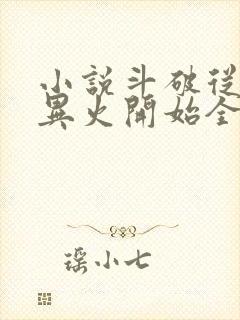 小說斗破從
異火開始全
瑶小七